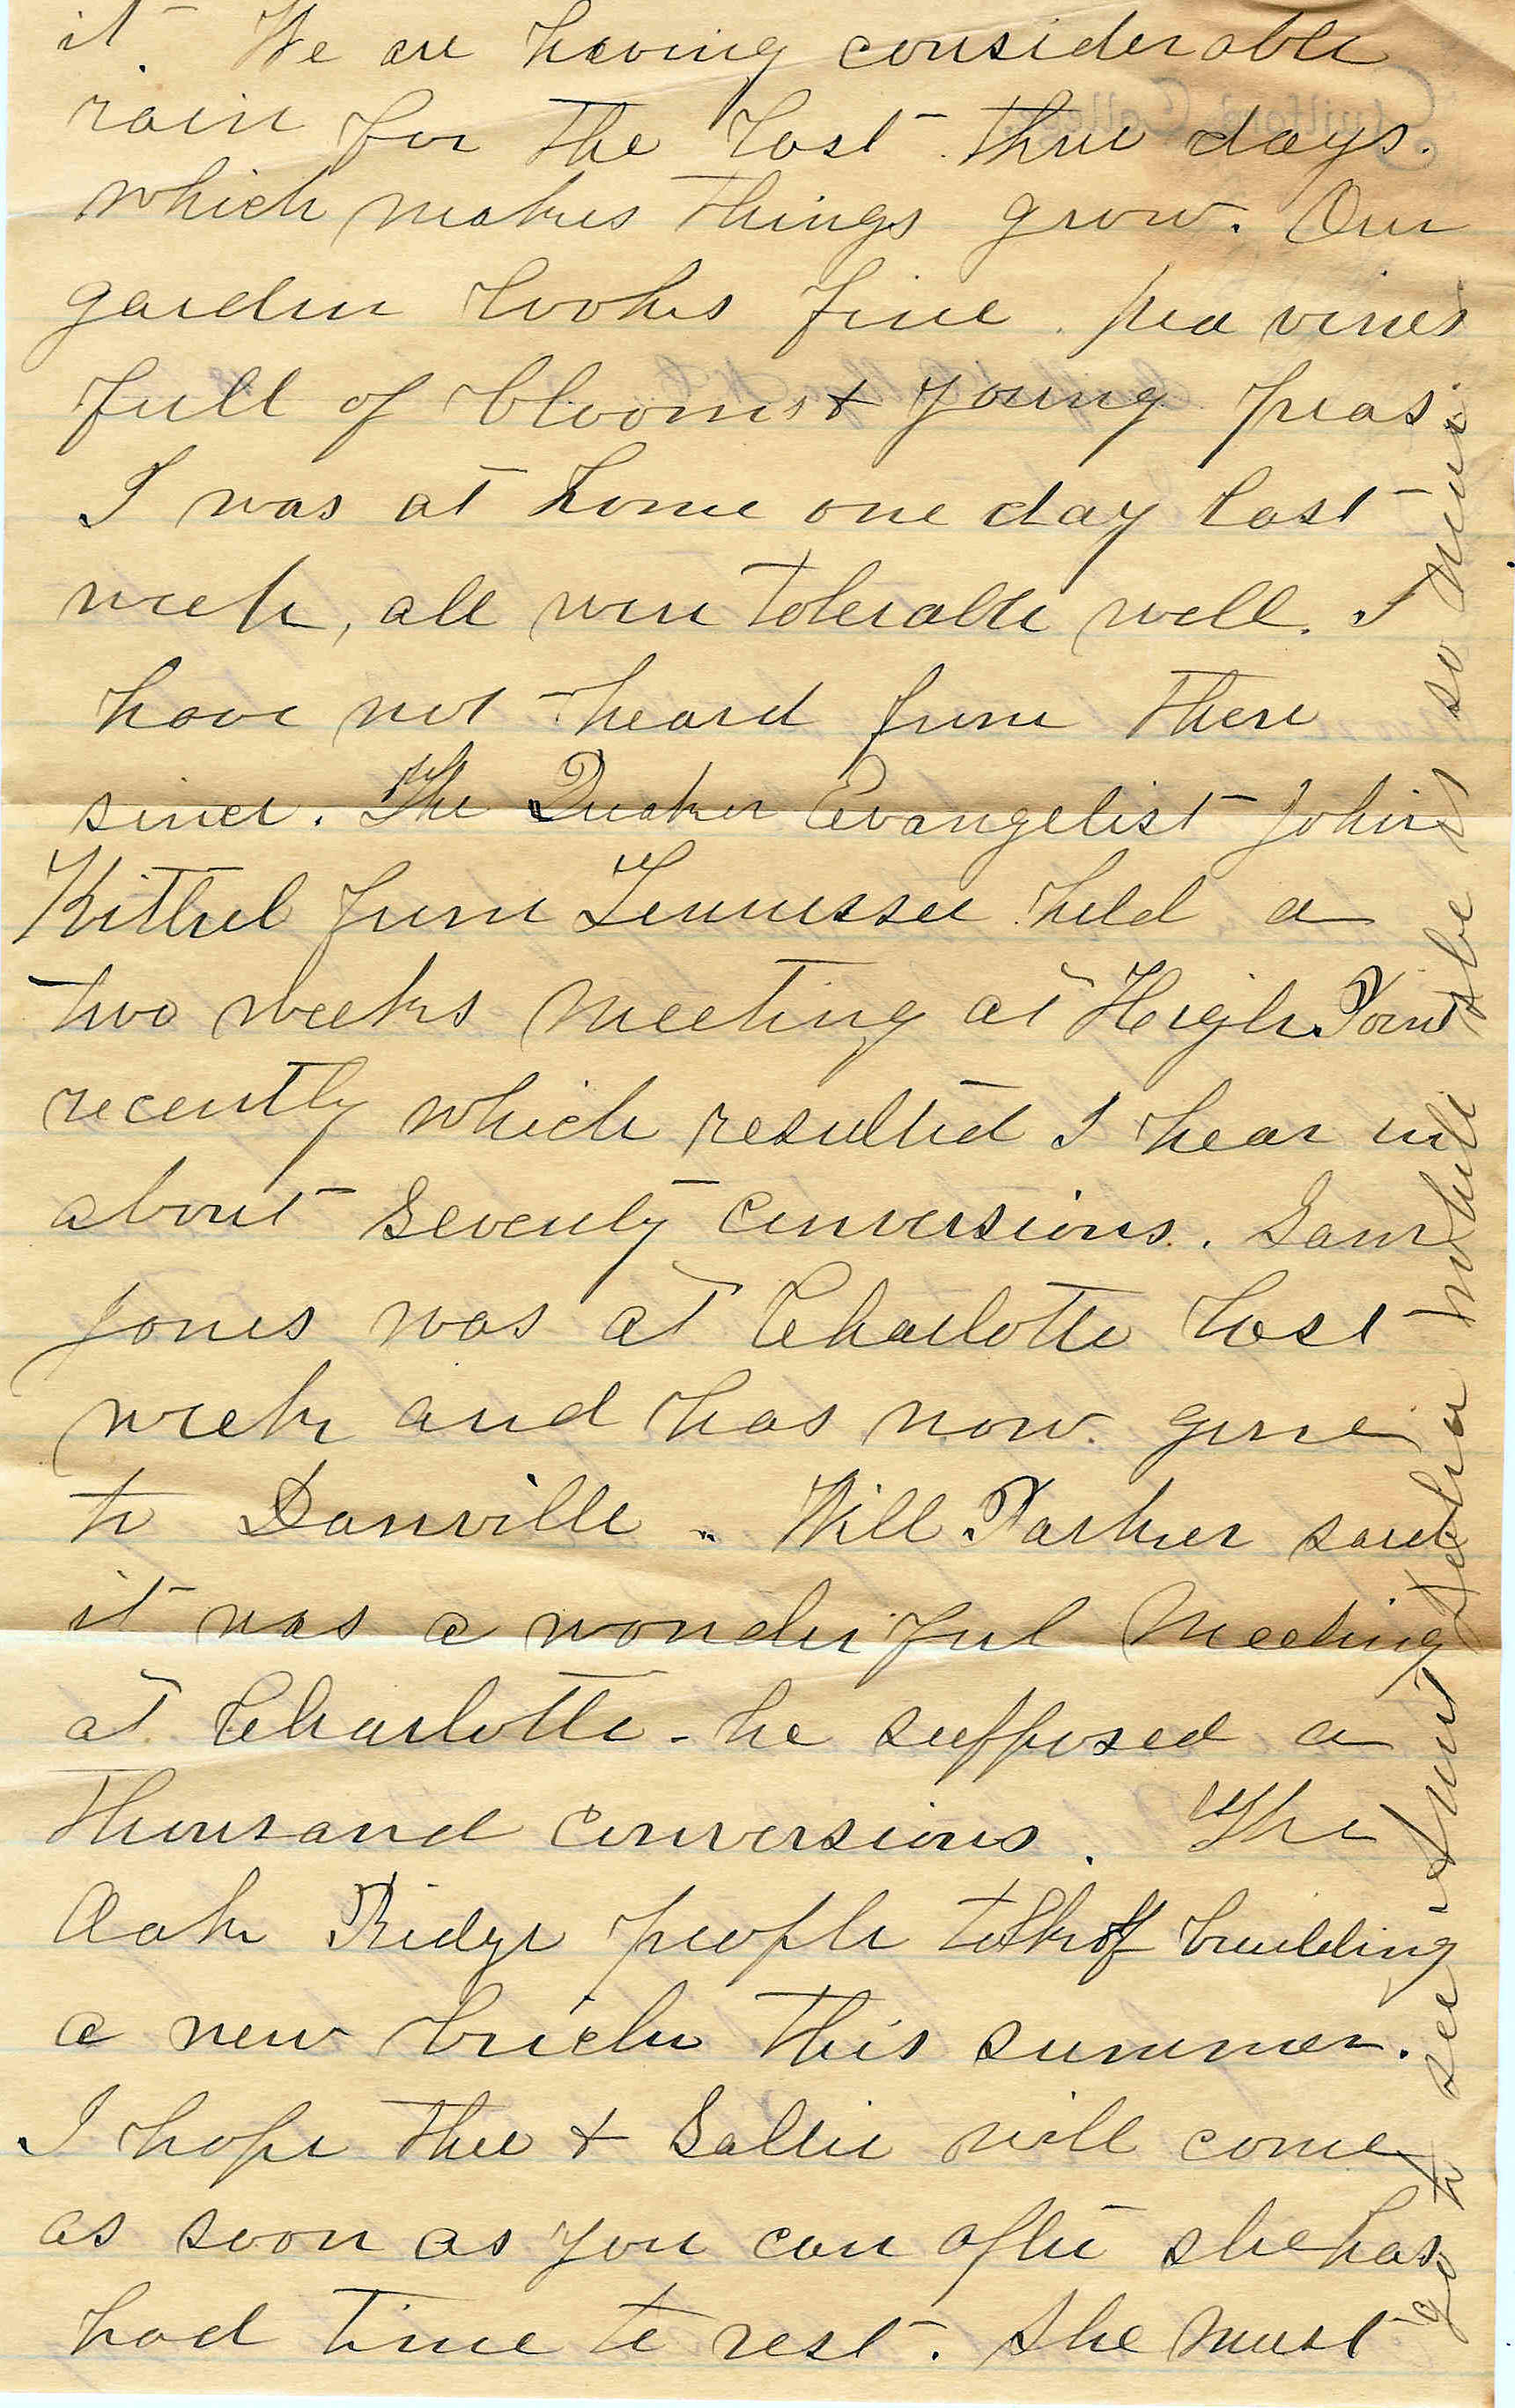 it. We are having considerable
rain for the last three days.
which makes things grow. Our
garden looks fine. pea vines
full of blooms & young peas.
I was at home one day last
week, all were tolerable well. I
have not heard from there
since. The Quaker Evangelist John
Kittrel from Tennessee held a
two weeks meeting at High Point
recently which resulted I hear in
about seventy conversions. Sam
Jones was at Charlotte last
week and has now gone
to Danville. Will Parker said
it was a wonderful meeting
at Charlotte - he supposed a
thousand conversions. The
Oak Ridge people talk of building
a new brick this summer.
I hope thee & Sallie will come
as soon as you can after she has
had time to rest. She must
go to see Aunt while she is so near
Guilford College